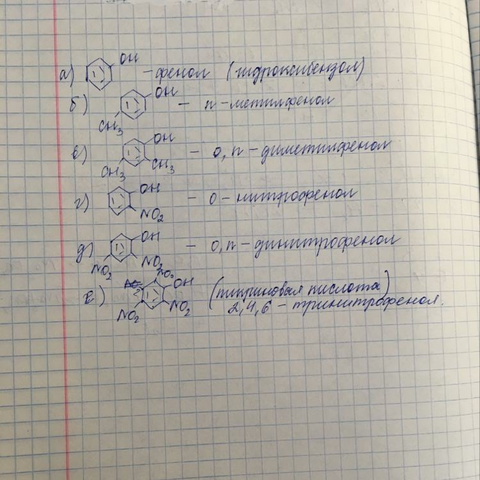 а) OH - фенол (гидроксибензол)
б) OH CH3 - п-метилфенол
в) OH CH3 CH3 - о,п-диметилфенол
г) OH NO2 - о-нитрофенол
д) OH NO2 NO2 - о,п-динитрофенол
е) NO2 OH NO2 NO2 (пикриновая кислота)
2,4,6-тринитрофенол.